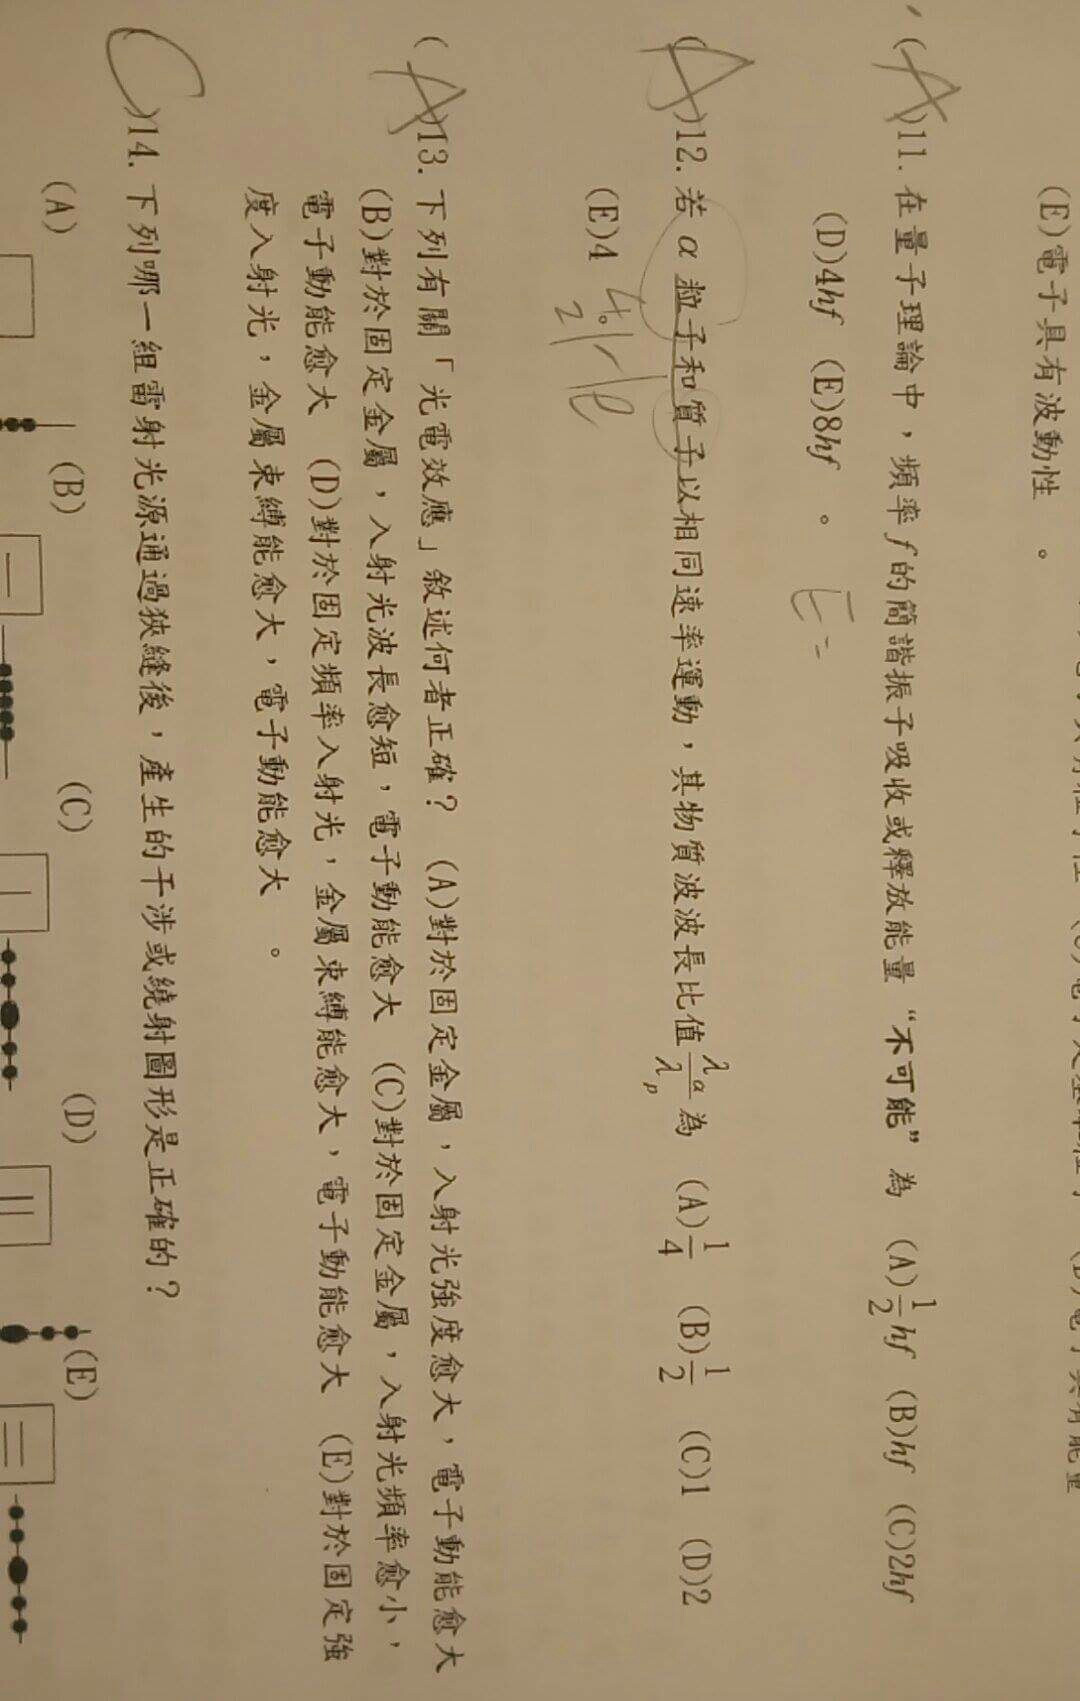 (E)電子具有波動性 。
(A)11. 在量子理論中，頻率 f 的簡諧振子吸收或釋放能量 “不可能” 為 (A)1/2 hf (B)hf (C)2hf
(D)4hf (E)8hf 。
E=
(A)12. 若 α 粒子和質子以相同速率運動，其物質波波長比值 λα/λp 為 (A)1/4 (B)1/2 (C)1 (D)2
(E)4
(A)13. 下列有關「光電效應」敘述何者正確？ (A)對於固定金屬，入射光強度愈大，電子動能愈大
(B)對於固定金屬，入射光波長愈短，電子動能愈大 (C)對於固定金屬，入射光頻率愈小，
電子動能愈大 (D)對於固定頻率入射光，金屬束縛能愈大，電子動能愈大 (E)對於固定強
度入射光，金屬束縛能愈大，電子動能愈大 。
(C)14. 下列哪一組雷射光源通過狹縫後，產生的干涉或繞射圖形是正確的？
(A) (B) (C) (D) (E)